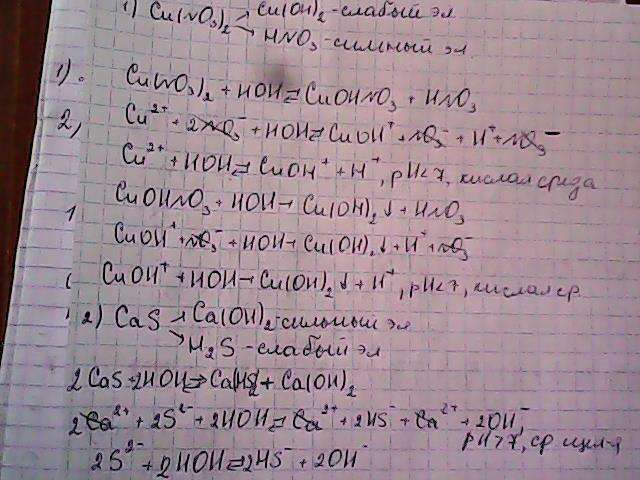 1) Cu(NO₃)₂ → Cu(OH)₂ - слабый эл
→ HNO₃ - сильный эл.
1). Cu(NO₃)₂ + HOH ⇄ CuOHNO₃ + HNO₃
2) Cu²⁺ + 2NO₃⁻ + HOH ⇄ CuOH⁺ + NO₃⁻ + H⁺ + NO₃⁻
Cu²⁺ + HOH ⇄ CuOH⁺ + H⁺, pH<7, кислая среда
CuOHNO₃ + HOH → Cu(OH)₂↓ + HNO₃
CuOH⁺ + NO₃⁻ + HOH → Cu(OH)₂↓ + H⁺ + NO₃⁻
CuOH⁺ + HOH → Cu(OH)₂↓ + H⁺, pH<7, кислая ср
2) CaS → Ca(OH)₂ - сильный эл
→ H₂S - слабый эл
2CaS + 2HOH ⇄ Ca(HS)₂ + Ca(OH)₂
2Ca²⁺ + 2S²⁻ + 2HOH ⇄ Ca²⁺ + 2HS⁻ + Ca²⁺ + 2OH⁻,
pH>7, ср. щел-я
2S²⁻ + 2HOH ⇄ 2HS⁻ + 2OH⁻